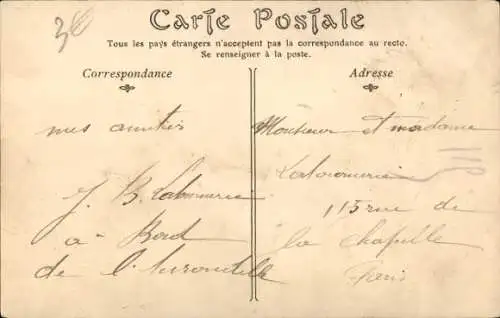 3€
Carte Postale
Tous les pays étrangers n'acceptent pas la correspondance au recto.
Se renseigner à la poste.
Correspondance
mes amitiés
J. B.
a Bord
de
Adresse
Monsieur et madame
115 rue de
la chapelle
Paris